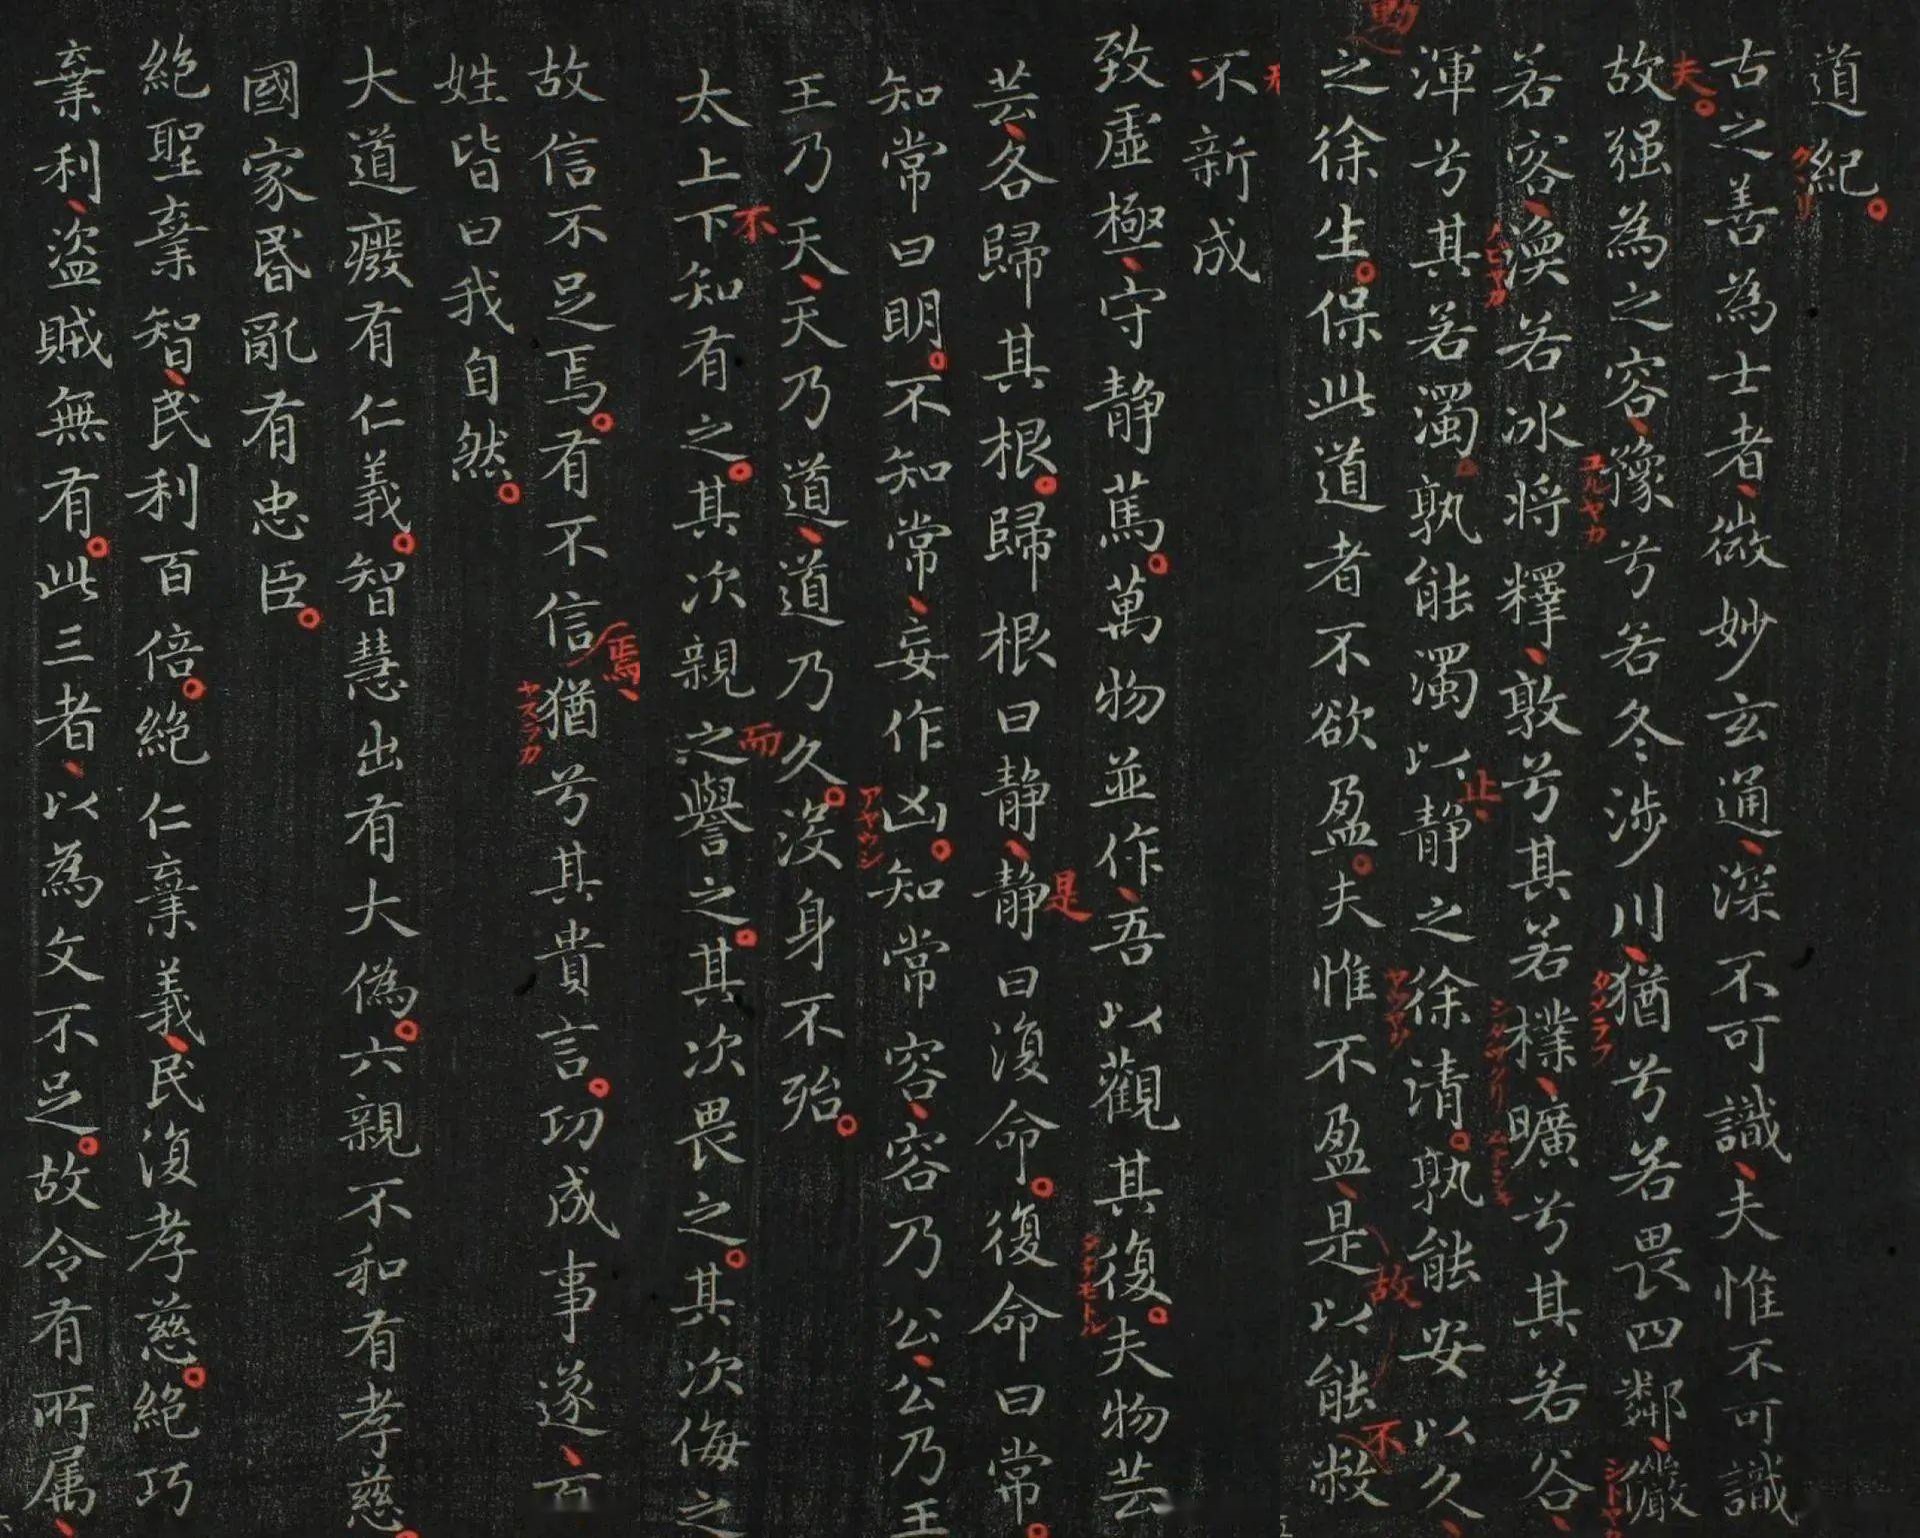 道紀
古之善為士者微妙玄通深不可識夫惟不可識
故强為之容豫兮若冬涉川猶兮若畏四鄰儼
若容渙若冰將釋敦兮其若樸曠兮其若谷
渾兮其若濁孰能濁以静之徐清孰能安以久
之徐生保此道者不欲盈夫惟不盈是以能敝
不新成
致虛極守静篤萬物並作吾以觀其復夫物芸
芸各歸其根歸根曰静静曰復命復命曰常
知常曰明不知常妄作凶知常容容乃公公乃王
王乃天天乃道道乃久沒身不殆
太上下知有之其次親之譽之其次畏之其次侮之
故信不足焉有不信猶兮其貴言功成事遂百
姓皆曰我自然
大道癈有仁義智慧出有大偽六親不和有孝慈
國家昏亂有忠臣
絕聖棄智民利百倍絕仁棄義民復孝慈絕巧
棄利盜賊無有此三者以為文不足故令有所属
夫
不
焉
而
是
止
故
不
ユルヤカ
タメラフ
ヤスラカ
アヤウシ